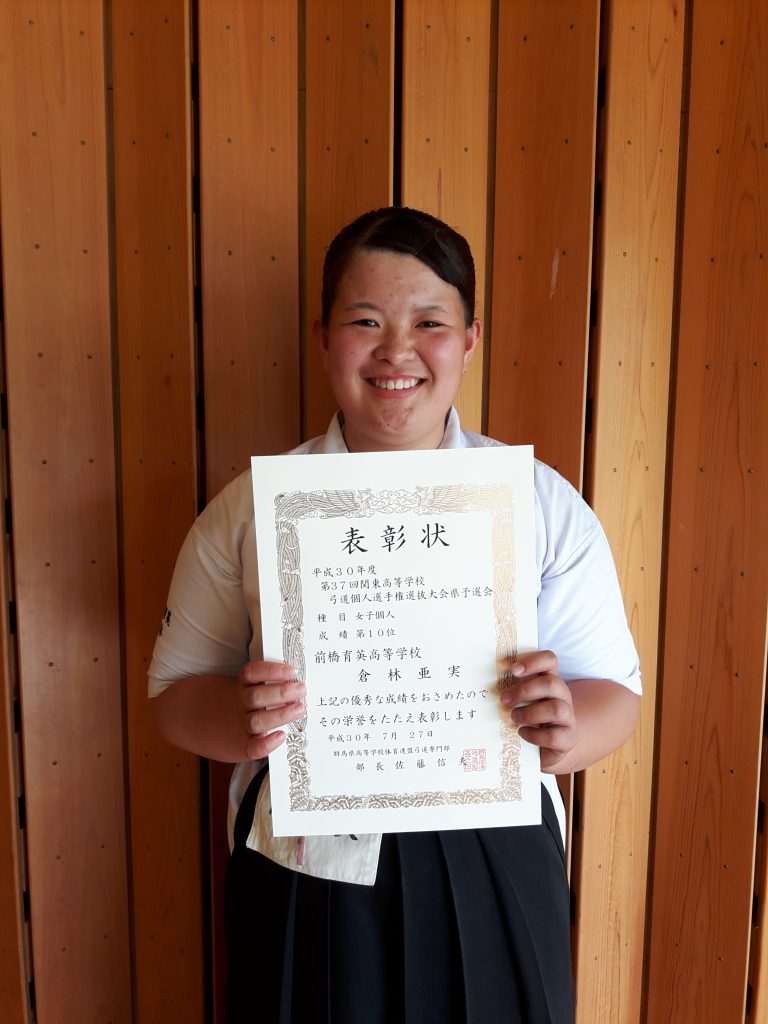 表彰状
平成30年度
第37回関東高等学校
弓道個人選手権選抜大会県予選会
種 目 女子個人
成 績 第10位
前橋育英高等学校
倉 林 亜 実
上記の優秀な成績をおさめたので
その栄誉をたたえ表彰します
平成30年 7月 27日
群馬県高等学校体育連盟弓道専門部
部 長 佐 藤 信 夫